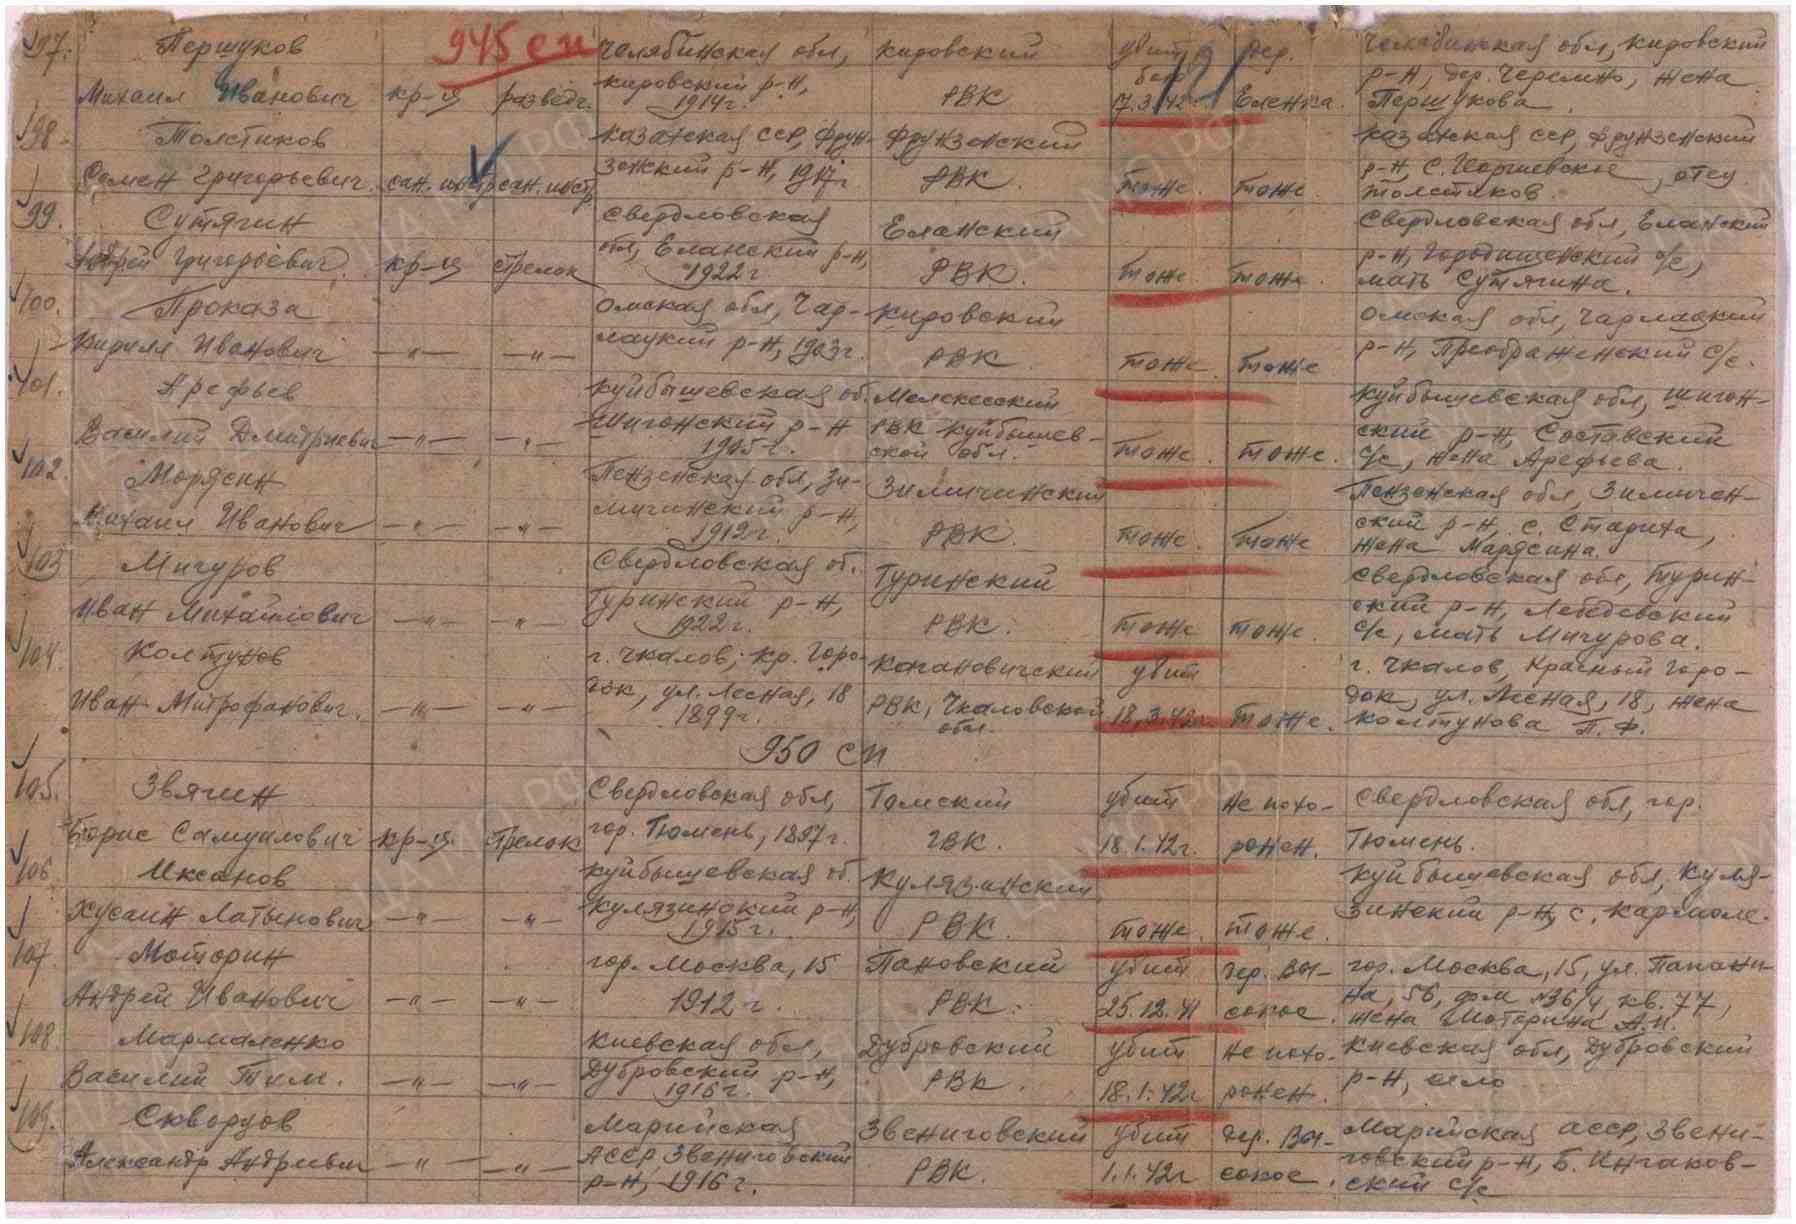 97. Першуков 945 сп Челябинская обл, Кировский убит дер. Челябинская обл, Кировский
Михаил Иванович кр-ец разведч. Кировский р-н, 1914г. РВК 17.3.42г. Еленка. р-н, дер. Черемно, жена Першукова
98. Толстиков Казахская ССР, Фрун- Фрунзенский Казахская ССР, Фрунзенский
Семен Григорьевич сан. зенский р-н, 1917г РВК тоже. тоже р-н, с. Георгиевское, отец Толстиков.
99. Сутягин Свердловская Еланский Свердловская обл, Еланский
Андрей Григорьевич кр-ец стрелок обл, Еланский р-н, 1922г РВК. тоже. тоже. р-н, Городищенский с/с, мать Сутягина.
100. Проказа Омская обл, Чар- Кировский Омская обл, Чарлакский
Кирилл Иванович —"— —"— лакский р-н, 1903г. РВК тоже. тоже р-н, Преображенский с/с.
101. Арефьев Куйбышевская об. Мелекесский Куйбышевская обл, Шигон-
Василий Дмитриевич —"— —"— Шигонский р-н 1905г. РВК Куйбышев- ской обл. тоже. тоже. ский р-н, Составский с/с, жена Арефьева.
102. Мордясин Пензенская обл, Зи- Зимитчинский Пензенская обл, Зимитчен-
Михаил Иванович —"— —"— митчинский р-н, 1912г. РВК. тоже. тоже ский р-н, с. Стариха, жена Мардясина.
103 Мичуров Свердловская об. Туринский Свердловская обл, Турин-
Иван Михайлович —"— —"— Туринский р-н, 1922г. РВК. тоже тоже. ский р-н, Лебедевский с/с, мать Мичурова.
104. Колтунов г. Чкалов, Кр. Горо- Кагановичский убит г. Чкалов, Красный Горо-
Иван Митрофанович. —"— —"— док, ул. Лесная, 18 1899г. РВК, Чкаловской обл. 18.3.42г. тоже. док, ул. Лесная, 18, жена Колтунова П.Ф.
950 сп
105. Звягин Свердловская обл, Томский убит не похо- Свердловская обл, гор.
Борис Самуилович кр-ец. стрелок гор. Тюмень, 1897г. ГВК. 18.1.42г. ронен. Тюмень.
106 Иксанов Куйбышевская об. Кулязинский Куйбышевская обл, Куля-
Хусаин Латынович —"— —"— Кулязинский р-н, 1915г. РВК. тоже. тоже. зинский р-н, с. Кармале.
107. Моторин гор. Москва, 15 Пановский убит дер. Вы- гор. Москва, 15, ул. Папани-
Андрей Иванович —"— —"— 1912г. РВК. 25.12.41 сокое. на, 56, фм №36/4, кв. 77, жена Моторина А.И.
108. Мармаленко Киевская обл, Дубровский убит не похо- Киевская обл, Дубровский
Василий Тим. —"— —"— Дубровский р-н, 1916г. РВК. 18.1.42г ронен. р-н, село
109. Скворцов Марийская Звениговский убит дер. Вы- Марийская АССР, Звени-
Александр Андреевич —"— —"— АССР Звениговский р-н, 1916г. РВК. 1.1.42г сокое. говский р-н, Б. Ингаков- ский с/с